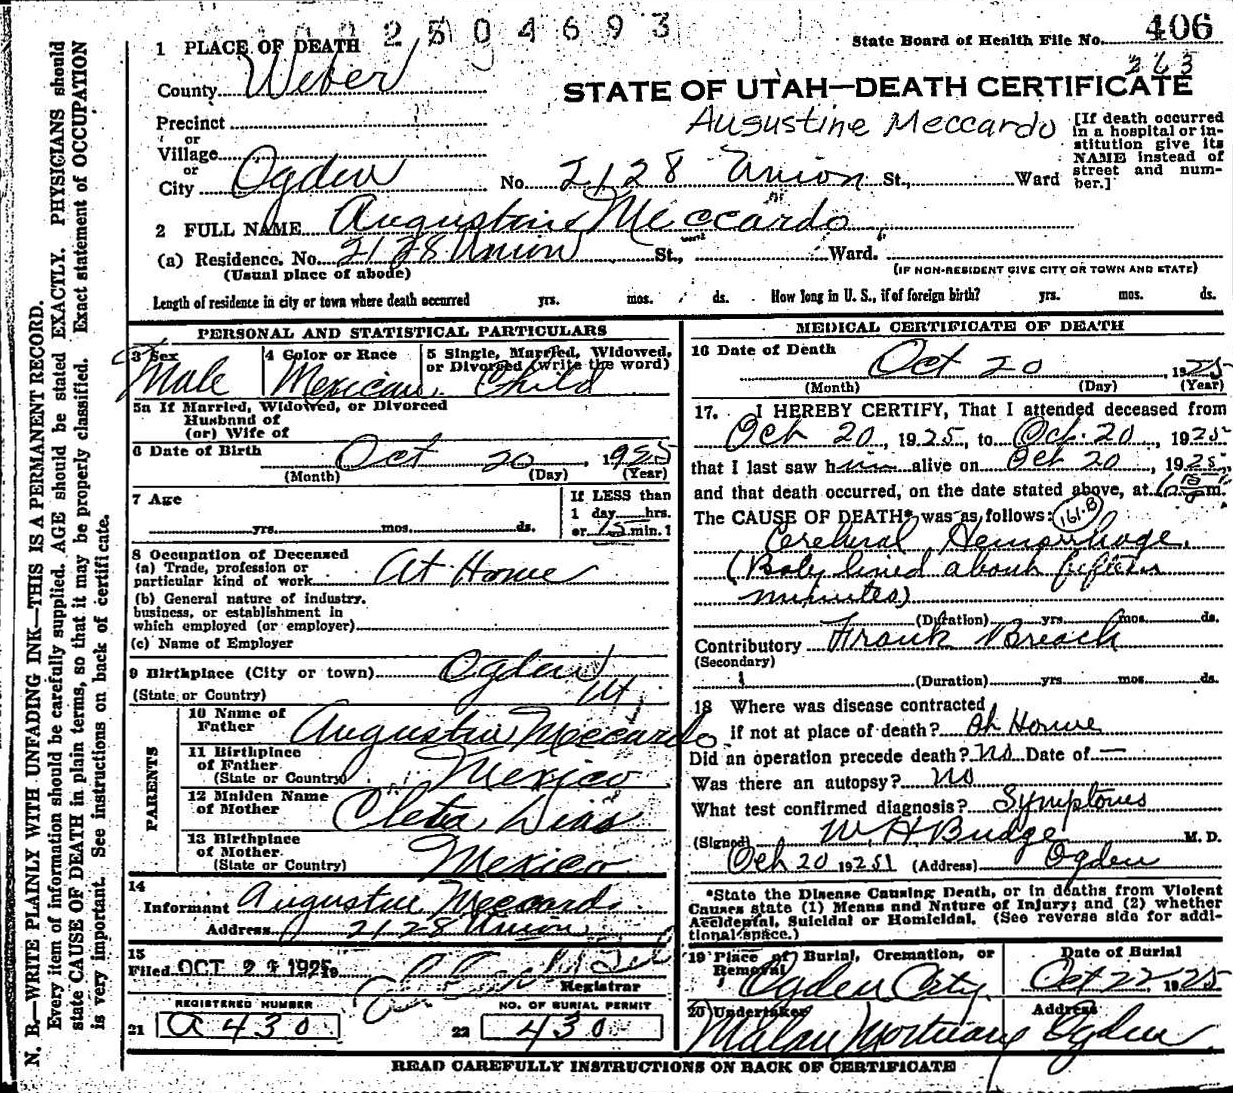 2504693
State Board of Health File No. 406
263
1 PLACE OF DEATH
County Weber
STATE OF UTAH—DEATH CERTIFICATE
Augustine Meccardo
[If death occurred in a hospital or institution give its NAME instead of street and number.]
Precinct
or
Village
or
City Ogden No. 2128 Union St., Ward
2 FULL NAME Augustine Meccardo
(a) Residence. No. 2128 Union St., Ward.
(Usual place of abode)
(IF NON-RESIDENT GIVE CITY OR TOWN AND STATE)
Length of residence in city or town where death occurred yrs. mos. ds. How long in U. S., if of foreign birth? yrs. mos. ds.
PERSONAL AND STATISTICAL PARTICULARS
3 Sex 4 Color or Race 5 Single, Married, Widowed, or Divorced (write the word)
Male Mexican Child
5a If Married, Widowed, or Divorced
Husband of
(or) Wife of
6 Date of Birth Oct 20, 1925
(Month) (Day) (Year)
7 Age
yrs. mos. ds.
If LESS than
1 day hrs.
or 15 min.?
8 Occupation of Deceased
(a) Trade, profession or
particular kind of work At Home
(b) General nature of industry,
business, or establishment in
which employed (or employer)
(c) Name of Employer
9 Birthplace (City or town) Ogden
(State or Country) Ut
PARENTS
10 Name of
Father Augustine Meccardo
11 Birthplace
of Father
(State or Country) Mexico
12 Maiden Name
of Mother Cleta Dias
13 Birthplace
of Mother
(State or Country) Mexico
14
Informant Augustine Meccardo
Address 2128 Union
15
Filed OCT 1925
Registrar
REGISTERED NUMBER NO. OF BURIAL PERMIT
21 a 430 22 430
MEDICAL CERTIFICATE OF DEATH
16 Date of Death
Oct 20, 1925
(Month) (Day) (Year)
17. I HEREBY CERTIFY, That I attended deceased from
Oct 20, 1925, to Oct. 20, 1925
that I last saw him alive on Oct 20, 1925,
and that death occurred, on the date stated above, at m.
The CAUSE OF DEATH* was as follows: 161-B
Cerebral Hemorrhage.
(Baby lived about fifteen
minutes)
(Duration) yrs. mos. ds.
Contributory Frank Breach
(Secondary)
(Duration) yrs. mos. ds.
18 Where was disease contracted
if not at place of death? At Home
Did an operation precede death? no Date of —
Was there an autopsy? no
What test confirmed diagnosis? Symptoms
(Signed) W. H. Budge M. D.
Oct 20 1925 (Address) Ogden
*State the Disease Causing Death, or in deaths from Violent
Causes state (1) Means and Nature of Injury; and (2) whether
Accidental, Suicidal or Homicidal. (See reverse side for additional space.)
19 Place of Burial, Cremation, or Removal Date of Burial
Ogden City Oct 22 1925
20 Undertaker Address
Malan Mortuary Ogden
READ CAREFULLY INSTRUCTIONS ON BACK OF CERTIFICATE
N. B.—WRITE PLAINLY WITH UNFADING INK—THIS IS A PERMANENT RECORD.
Every item of information should be carefully supplied. AGE should be stated EXACTLY. PHYSICIANS should
state CAUSE OF DEATH in plain terms, so that it may be properly classified. Exact statement of OCCUPATION
is very important. See instructions on back of certificate.